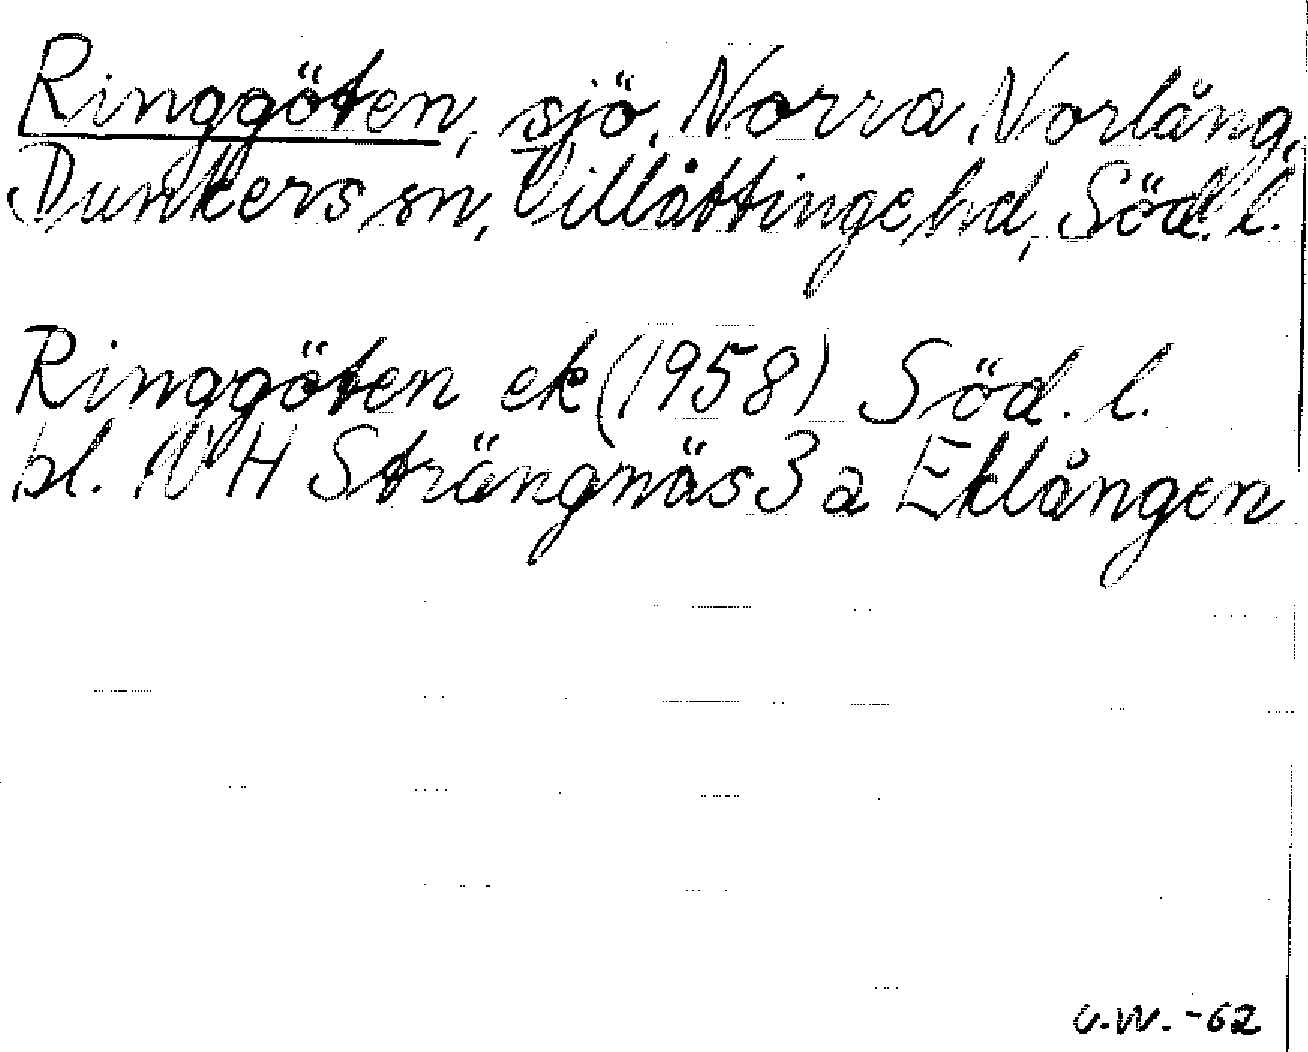 Ringgöten, sjö, Norra Vorlång,
Dunkers sn, Villåttinge hd, Söd. l.
Ringgöten ek (1958) Söd. l.
bl. 10 H Strängnäs 3 a Eklången
U.W. -62